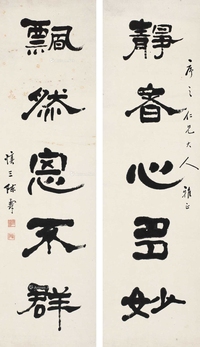 靜者心多妙
仁兄大人雅正
飄然思不群